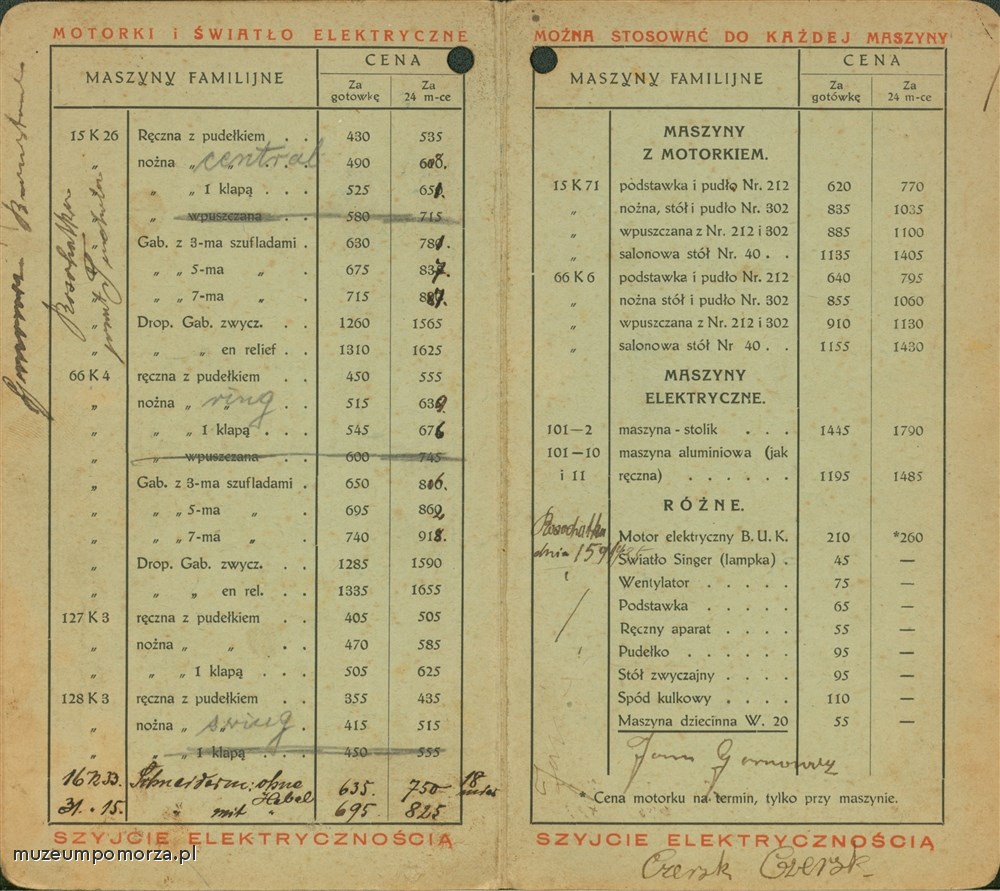 MOTORKI i ŚWIATŁO ELEKTRYCZNE
MASZYNY FAMILIJNE CENA
Za gotówkę Za 24 m-ce
15 K 26 Ręczna z pudełkiem . . 430 535
„ nożna „ „ central 490 608.
„ „ „ 1 klapą . . . 525 651.
„ „ wpuszczana . . 580 715
Gab. z 3-ma szufladami . 630 781.
„ „ „ 5-ma „ . 675 837.
„ „ „ 7-ma „ . 715 887.
„ Drop. Gab. zwycz. . . 1260 1565
„ „ „ en relief . . 1310 1625
66 K 4 ręczna z pudełkiem . . 450 555
„ nożna „ „ ring . . 515 639.
„ „ „ 1 klapą . . . 545 676
„ „ wpuszczana . . 600 745
„ Gab. z 3-ma szufladami . 650 806.
„ „ „ 5-ma „ . 695 862
„ „ „ 7-ma „ . 740 918.
„ Drop. Gab. zwycz. . . 1285 1590
„ „ „ en rel. . . 1335 1655
127 K 3 ręczna z pudełkiem . . 405 505
„ nożna „ „ . . 470 585
„ „ „ 1 klapą . . . 505 625
128 K 3 ręczna z pudełkiem . . 355 435
„ nożna „ „ swing . 415 515
„ „ „ 1 klapą . . . 450 555
ohne 635. 750 18
31. 15. „ mit „ 695 825
SZYJCIE ELEKTRYCZNOŚCIĄ
MOŻNA STOSOWAĆ DO KAŻDEJ MASZYNY
MASZYNY FAMILIJNE CENA
Za gotówkę Za 24 m-ce
MASZYNY
Z MOTORKIEM.
15 K 71 podstawka i pudło Nr. 212 620 770
„ nożna, stół i pudło Nr. 302 835 1035
„ wpuszczana z Nr. 212 i 302 885 1100
„ salonowa stół Nr. 40 . . 1135 1405
66 K 6 podstawka i pudło Nr. 212 640 795
„ nożna stół i pudło Nr. 302 855 1060
„ wpuszczana z Nr. 212 i 302 910 1130
„ salonowa stół Nr 40 . . 1155 1430
MASZYNY
ELEKTRYCZNE.
101—2 maszyna - stolik . . . 1445 1790
101—10 maszyna aluminiowa (jak
i 11 ręczna) . . . . . . 1195 1485
RÓŻNE.
Motor elektryczny B. U. K. 210 *260
dnia
Światło Singer (lampka) . 45 —
Wentylator . . . . . 75 —
Podstawka . . . . . 65 —
Ręczny aparat . . . . 55 —
Pudełko . . . . . . 95 —
Stół zwyczajny . . . . 95 —
Spód kulkowy . . . . 110 —
Maszyna dziecinna W. 20 55 —
* Cena motorku na termin, tylko przy maszynie.
SZYJCIE ELEKTRYCZNOŚCIĄ
Czersk Czersk
muzeumpomorza.pl